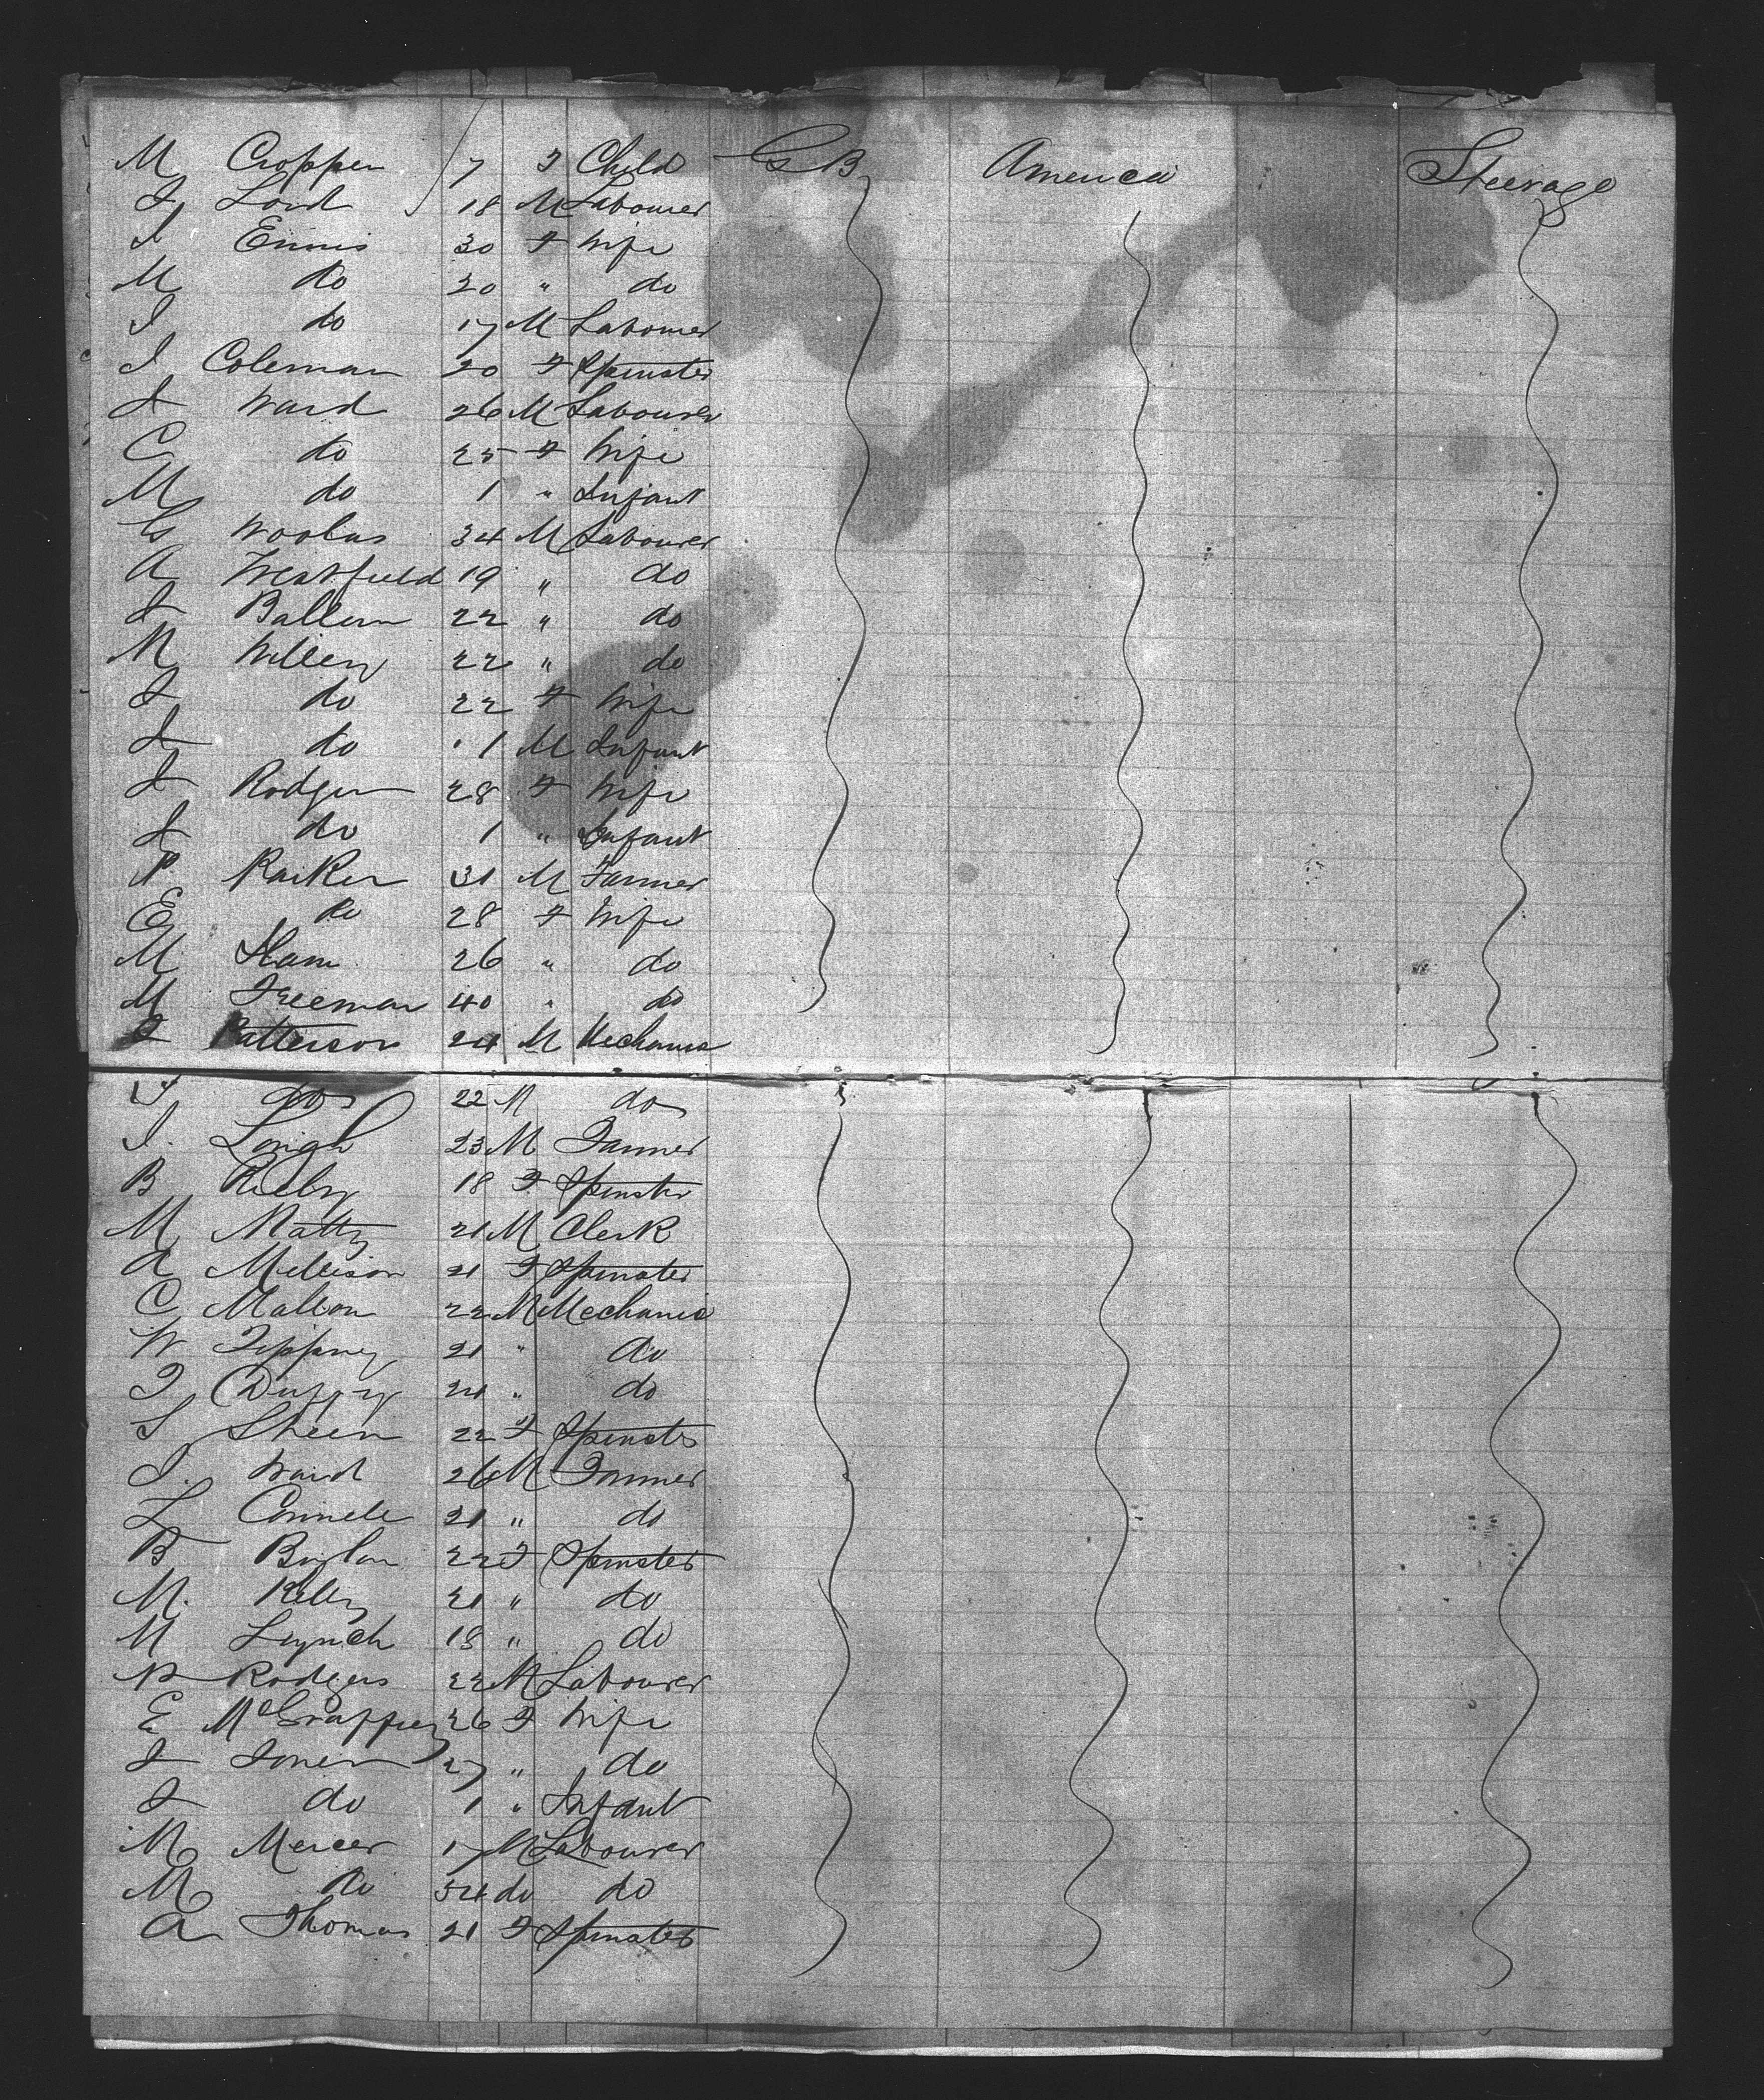 M Cropper 7 F Child G B America Steerage
J Lord 18 M Labourer
J Ennis 30 F Wife
M do 20 " do
J do 17 M Labourer
J Coleman 20 F Spinster
J Ward 26 M Labourer
C do 25 F Wife
M do 1 " Infant
G Woolas 34 M Labourer
A Westfield 19 " do
J Ballem 22 " do
M Willey 22 " do
J do 22 F Wife
J do 1 M Infant
J Rodger 28 F Wife
J do 1 " Infant
P Parker 31 M Farmer
E do 28 F Wife
M Ham 26 " do
M Freeman 40 " do
J Patterson 24 M Mechanic
J do 22 M do
J. 23 M Farmer
B Reilly 18 F Spinster
M Natty 21 M Clerk
A Mellison 21 F Spinster
C Mallon 22 M Mechanic
W Tippney 21 " do
J Duffy 24 " do
S Sheen 22 F Spinster
J. Ward 26 M Farmer
L Connele 21 " do
B Boylan 22 F Spinster
M. Kelly 21 " do
M Lynch 18 " do
P Rodgers 22 M Labourer
E 26 F Wife
J Jones 27 " do
J do 1 " Infant
M Mercer 17 M Labourer
M do 54 do do
A Thomas 21 F Spinster